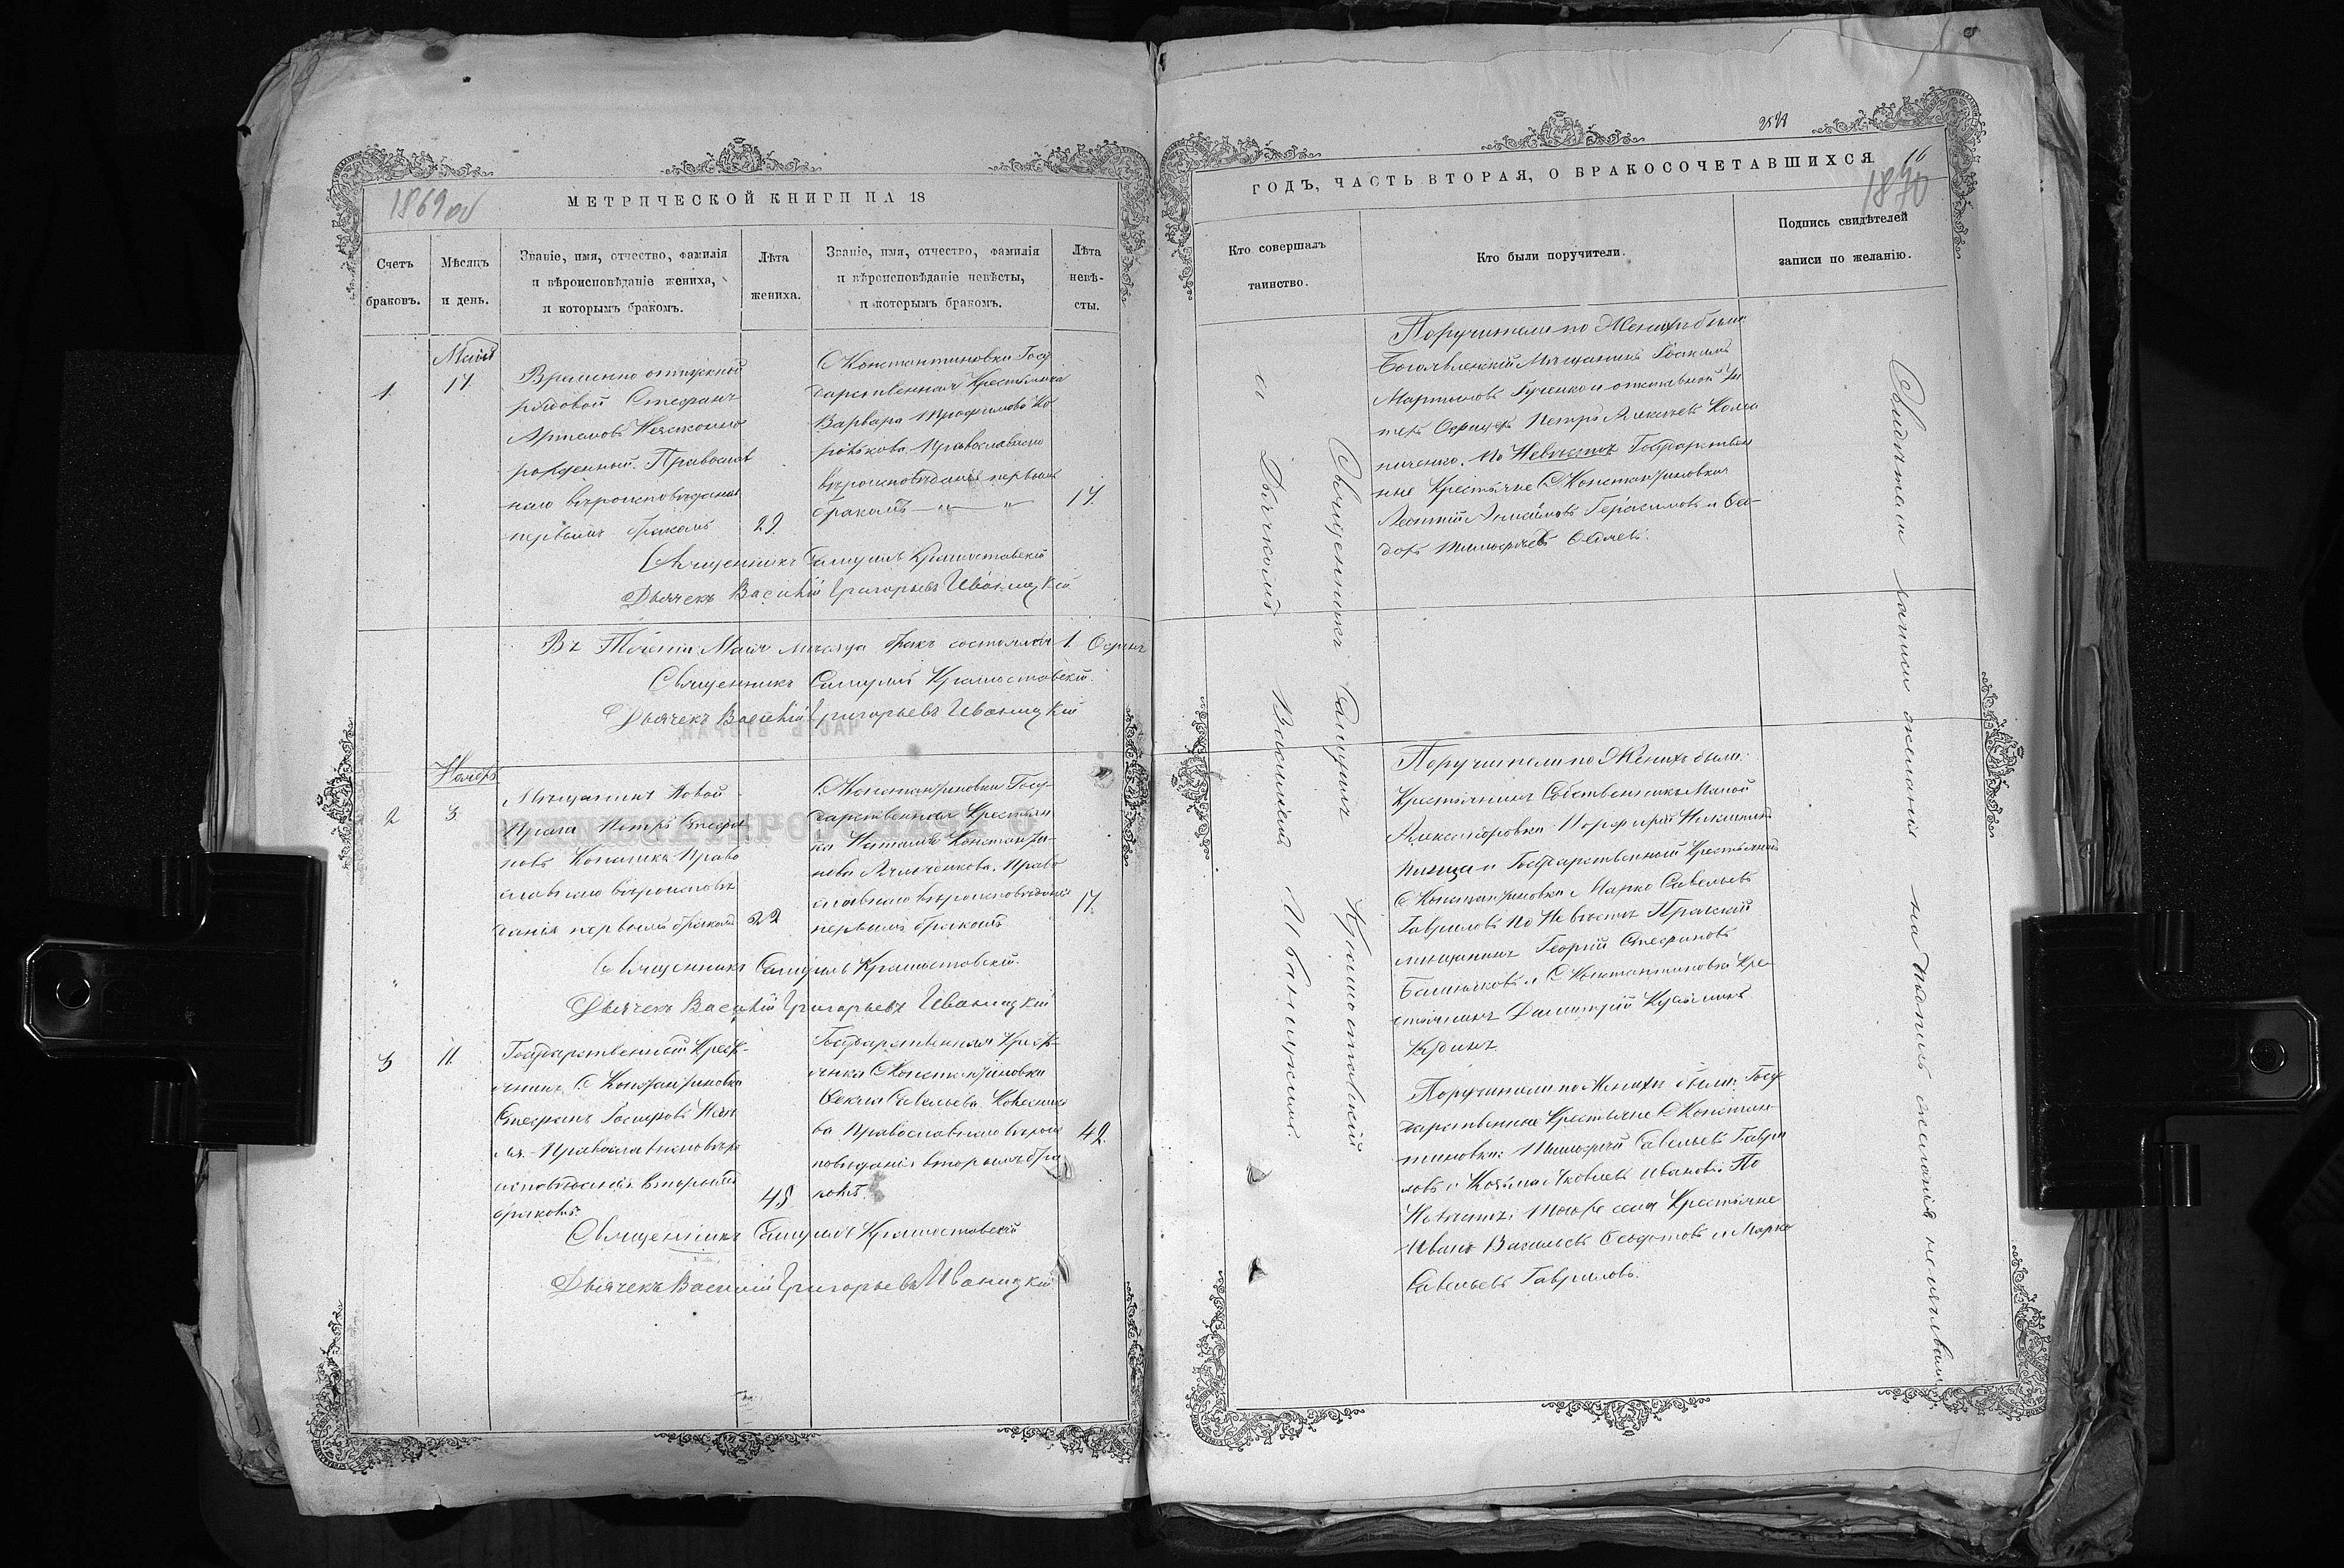 МЕТРИЧЕСКОЙ КНИГИ НА 18
1869
Счетъ браковъ.
Мѣсяцъ и день.
Званіе, имя, отчество, фамилія
и вѣроисповѣданіе жениха,
и которымъ бракомъ.
Лѣта
жениха.
Званіе, имя, отчество, фамилія
и вѣроисповѣданіе невѣсты,
и которымъ бракомъ.
Лѣта
невѣ-
сты.
1
Май
17.
Временно отпускной
рядовой Стефанъ
Артемовъ Незаконно
рожденный. Православ
наго вѣроисповѣданія
первымъ бракомъ
29.
С Константиновки Госу
дарственная Крестьянка
Варвара Трофимова Ко
ровякова. Православнаго
вѣроисповѣданія первымъ
бракомъ
17
Священникъ Самуилъ
Дьячекъ Василій Григорьевъ Иваницкій
Въ Теченіи Мая мѣсяца бракъ состоялся 1. Одинъ
Священникъ Самуилъ
Дьячекъ Василій Григорьевъ Иваницкій
Ноябрь
2
3.
Мѣщанинъ Новой
Праги Петръ Стефа
новъ Право
славнаго вѣроисповѣ
данія первымъ бракомъ
22
С Константиновки Госу-
дарственная Крестьян
ка Наталія Константи-
нова Право
славнаго вѣроисповѣданія
первымъ бракомъ
17.
Священникъ Самуилъ
Дьячекъ Василій Григорьевъ Иваницкій
3
11.
Государственный Крест-
янинъ С Константиновки
Стефанъ
Православнаго вѣро
исповѣданія вторымъ
бракомъ.
48
Государственная Крест-
янка С Константиновки
Фекла Савельева
ва Православнаго вѣроис
повѣданія вторымъ бра
комъ.
42.
Священникъ Самуилъ
Дьячекъ Василій Григорьевъ Иваницкій
ГОДЪ, ЧАСТЬ ВТОРАЯ, О БРАКОСОЧЕТАВШИХСЯ.
16
1870
Кто совершалъ
таинство.
Кто были поручители.
Подпись свидѣтелей
записи по желанію.
Священникъ Самуилъ
съ Дьячкомъ Василіемъ Иваницкимъ.
Поручители по Женихѣ были
Богоявленскій Мѣщанинъ
Мартиновъ и отставной Ун
теръ Офицеръ Петръ Алексѣевъ
ниченко. По Невѣстѣ Государствен
ные Крестьяне С Константиновки
Леонтій Герасимовъ и Фе-
доръ Тимофѣевъ
Поручители по Женихѣ были:
Крестьянинъ Собственникъ Малой
Александровки Порфирій
и Государственный Крестьянинъ
С Константиновки Марко Савельевъ
Гавриловъ По Невѣстѣ Пражскій
мѣщанинъ Георгій Стефановъ
и С Константиновки Кре-
стьянинъ Димитрій
Поручители по Женихѣ были: Госу
дарственные Крестьяне С Констан-
тиновки: Тимофей Савельевъ Гаври
ловъ и Козьма Яковлевъ Ивановъ. По
Невѣстѣ: того же села Крестьяне
Иванъ Васильевъ и Марко
Савельевъ Гавриловъ.
Свидѣтели записи желанія на подпись не изъявили